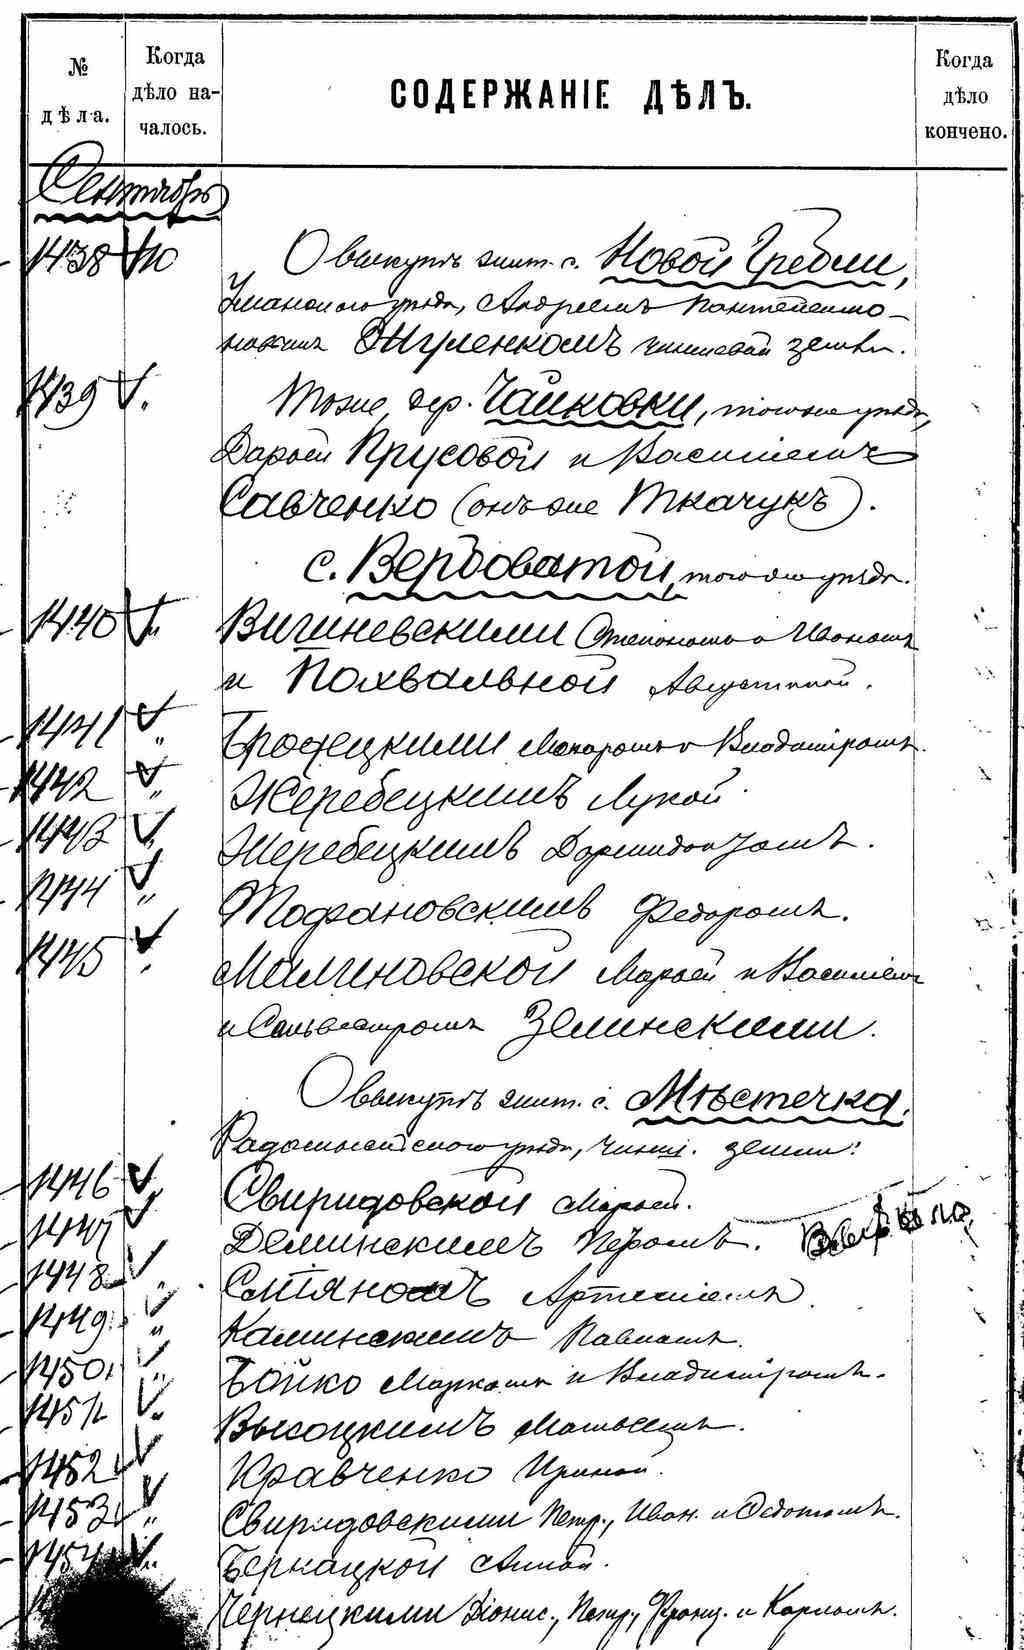 № дѣла.
Когда дѣло на-
чалось.
СОДЕРЖАНІЕ ДѢЛЪ.
Когда дѣло кончено.
Сентябрь
1438 10 О выкупѣ жит. с. Новой Гребли,
Уманского уѣзда, Андреемъ Пантелеймо-
новымъ Шуленкомъ чиншевой земли.
1439 " Тоже, дер. Чайковки, того же уѣзда,
Дарьей Прусовой и Василіемъ
Савченко (онъ же Ткачукъ).
с. Вербоватой, того же уѣзда.
1440 " Вишневскими Степаномъ и Иваномъ
и Похвальной Августиной.
1441 " Гродецкими Макаромъ и Владиміромъ.
1442 " Жеребецкимъ Лукой.
1443 " Жеребецкимъ Дормидонтомъ.
1444 " Тофановскимъ Федоромъ.
1445 " Малиновской Марьей и Василіемъ
и Сильвестромъ Зелинскими.
О выкупѣ жит. с. Мѣстечка,
Радомысльского уѣзда, чинш. земли:
1446 " Свиридовской Марьей.
1447 Деминскимъ Петромъ.
1448 " Артеміемъ.
1449 " Каминскимъ Павломъ.
1450 " Бойко Маркомъ и Владиміромъ.
1451 " Высоцкимъ Матвеемъ.
1452 " Кравченко Ириной.
1453 " Свиридовскими Петр., Иван. и Федотомъ.
1454 " Бернацкой Анной.
Чернецкими Діонис., Петр., Франц. и Карломъ.